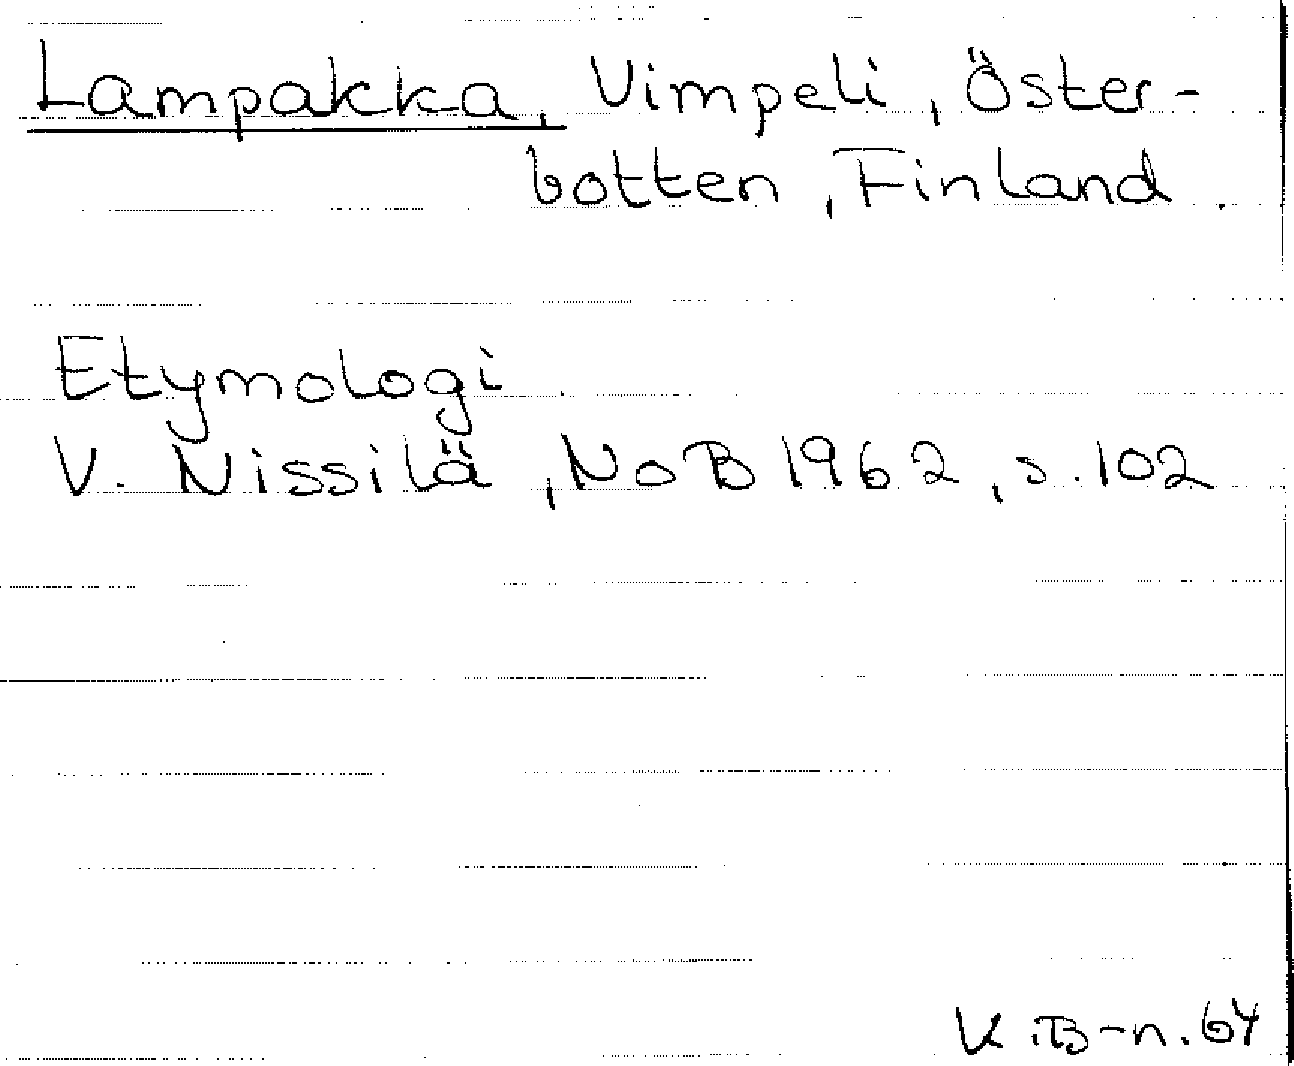 Lampakka, Vimpeli, Öster-
botten, Finland.
Etymologi
V. Nissilä, NoB 1962, s. 102
K.B-n. 64